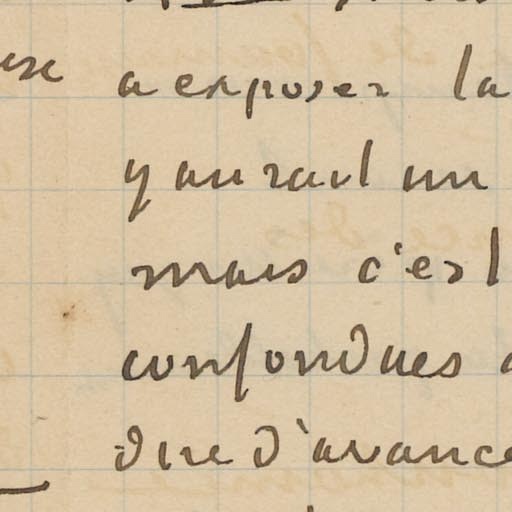 a exposer la
y aurait un
mais c'est
confondues
dire d'avance